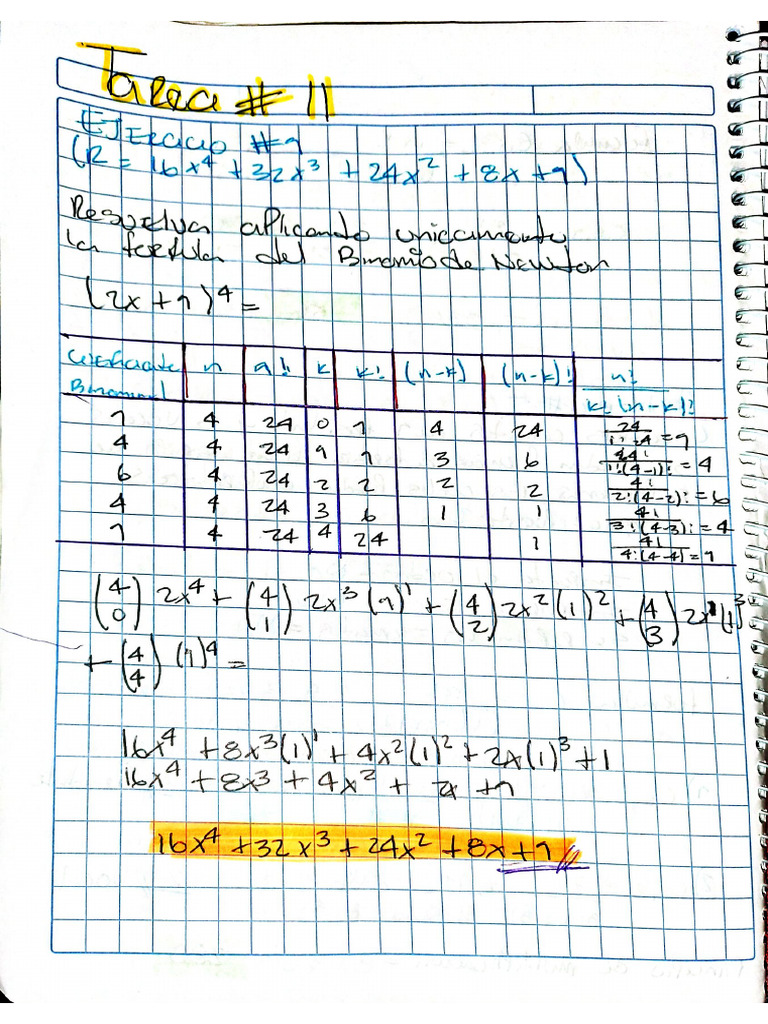 Tarea # 11
EJERCICIO #1
(R = 16x⁴ + 32x³ + 24x² + 8x + 1)
Resuelva aplicando unicamente
la formula del Binomio de Newton
(2x + 1)⁴ =
Coeficiente Binomial | n | n! | k | k! | (n-k) | (n-k)! | n! / k!(n-k)!
1 | 4 | 24 | 0 | 1 | 4 | 24 | 24 / 1!·4 = 1
4 | 4 | 24 | 1 | 1 | 3 | 6 | 4! / 1!(4-1)! = 4
6 | 4 | 24 | 2 | 2 | 2 | 2 | 4! / 2!(4-2)! = 6
4 | 4 | 24 | 3 | 6 | 1 | 1 | 4! / 3!(4-3)! = 4
1 | 4 | 24 | 4 | 24 | | 1 | 4! / 4!(4-4) = 1
(4 0) 2x⁴ + (4 1) 2x³(1)¹ + (4 2) 2x²(1)² + (4 3) 2x¹(1)³
+ (4 4) (1)⁴ =
16x⁴ + 8x³(1)¹ + 4x²(1)² + 2x(1)³ + 1
16x⁴ + 8x³ + 4x² + 2x + 1
16x⁴ + 32x³ + 24x² + 8x + 1